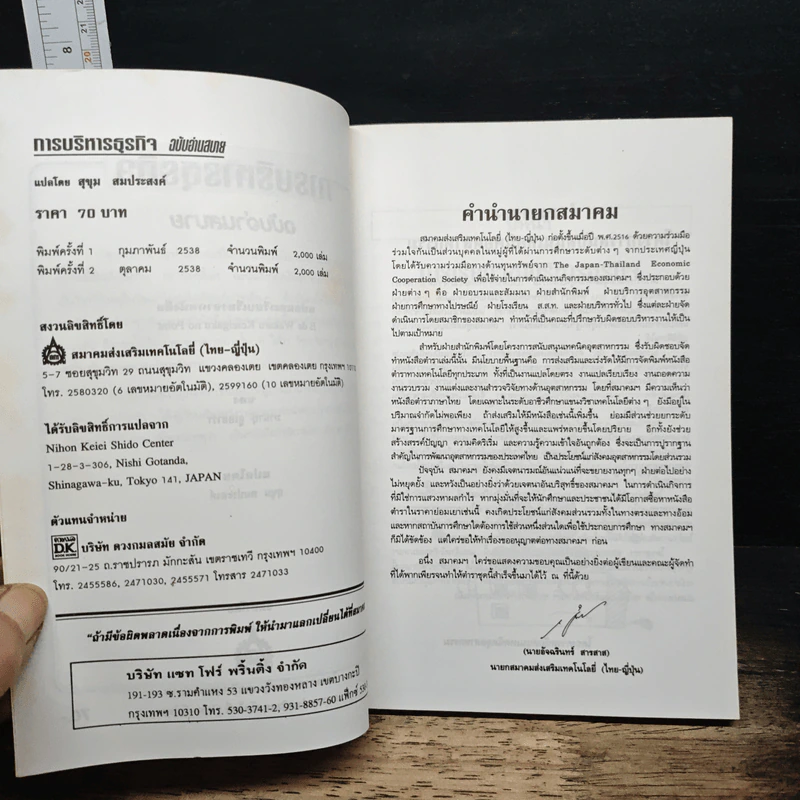 การบริหารธุรกิจ ฉบับอ่านสบาย
แปลโดย สุขุม สมประสงค์
ราคา 70 บาท
พิมพ์ครั้งที่ 1 กุมภาพันธ์ 2538 จำนวนพิมพ์ 2,000 เล่ม
พิมพ์ครั้งที่ 2 ตุลาคม 2538 จำนวนพิมพ์ 2,000 เล่ม
สงวนลิขสิทธิ์โดย
สมาคมส่งเสริมเทคโนโลยี (ไทย-ญี่ปุ่น)
5-7 ซอยสุขุมวิท 29 ถนนสุขุมวิท แขวงคลองเตย เขตคลองเตย กรุงเทพฯ
โทร. 2580320 (6 เลขหมายอัตโนมัติ), 2599160 (10 เลขหมายอัตโนมัติ)
ได้รับลิขสิทธิ์การแปลจาก
Nihon Keiei Shido Center
1-28-3-306, Nishi Gotanda,
Shinagawa-ku, Tokyo 141, JAPAN
ตัวแทนจำหน่าย
บริษัท ดวงกมลสมัย จำกัด
90/21-25 ถ.ราชปรารภ มักกะสัน เขตราชเทวี กรุงเทพฯ 10400
โทร. 2455586, 2471030, 2455571 โทรสาร 2471033
"ถ้ามีข้อผิดพลาดเนื่องจากการพิมพ์ ให้นำมาแลกเปลี่ยนได้ที่สมาคม
บริษัท แซท โฟร์ พริ้นติ้ง จำกัด
191-193 ซ.รามคำแหง 53 แขวงวังทองหลาง เขตบางกะปิ
กรุงเทพฯ 10310 โทร. 530-3741-2, 931-8857-60 แฟ็กซ์
คำนำนายกสมาคม
สมาคมส่งเสริมเทคโนโลยี (ไทย-ญี่ปุ่น) ก่อตั้งขึ้นเมื่อปี พ.ศ.2516 ด้วยความร่วมมือ
ร่วมใจกันเป็นส่วนบุคคลในหมู่ผู้ที่ได้ผ่านการศึกษาระดับต่าง ๆ จากประเทศญี่ปุ่น
โดยได้รับความร่วมมือทางด้านทุนทรัพย์จาก The Japan-Thailand Economic
Cooperation Society เพื่อใช้จ่ายในการดำเนินงานกิจกรรมของสมาคมฯ ซึ่งประกอบด้วย
ฝ่ายต่าง ๆ คือ ฝ่ายอบรมและสัมมนา ฝ่ายสำนักพิมพ์ ฝ่ายบริการอุตสาหกรรม
ฝ่ายการศึกษาทางไปรษณีย์ ฝ่ายโรงเรียน ส.ส.ท. และฝ่ายบริหารทั่วไป ซึ่งแต่ละฝ่ายจัด
ดำเนินการโดยสมาชิกของสมาคมฯ ทำหน้าที่เป็นคณะที่ปรึกษารับผิดชอบบริหารงานให้เป็น
ไปตามเป้าหมาย
สำหรับฝ่ายสำนักพิมพ์โดยโครงการสนับสนุนเทคนิคอุตสาหกรรม ซึ่งรับผิดชอบจัด
ทำหนังสือตำราเล่มนี้นั้น มีนโยบายพื้นฐานคือ การส่งเสริมและเร่งรัดให้มีการจัดพิมพ์หนังสือ
ตำราทางเทคโนโลยีทุกประเภท ทั้งที่เป็นงานแปลโดยตรง งานแปลเรียบเรียง งานถอดความ
งานรวบรวม งานแต่งและงานสำรวจวิจัยทางด้านอุตสาหกรรม โดยที่สมาคมฯ มีความเห็นว่า
หนังสือตำราภาษาไทย โดยเฉพาะในระดับอาชีวศึกษาแขนงวิชาเทคโนโลยีต่าง ๆ ยังมีอยู่ใน
ปริมาณจำกัดไม่พอเพียง ถ้าส่งเสริมให้มีหนังสือเช่นนี้เพิ่มขึ้น ย่อมมีส่วนช่วยยกระดับ
มาตรฐานการศึกษาทางเทคโนโลยีให้สูงขึ้นและแพร่หลายขึ้นโดยปริยาย อีกทั้งยังช่วย
สร้างสรรค์ปัญญา ความคิดริเริ่ม และความรู้ความเข้าใจอันถูกต้อง ซึ่งจะเป็นการปูรากฐาน
สำคัญในการพัฒนาอุตสาหกรรมของประเทศไทย เป็นประโยชน์แก่สังคมอุตสาหกรรมโดยส่วนรวม
ปัจจุบัน สมาคมฯ ยังคงมีเจตนารมณ์อันแน่วแน่ที่จะขยายงานทุกๆ ฝ่ายต่อไปอย่าง
ไม่หยุดยั้ง และหวังเป็นอย่างยิ่งว่าด้วยเจตนาอันบริสุทธิ์ของสมาคมฯ ในการดำเนินกิจการ
ที่มิใช่การแสวงหาผลกำไร หากมุ่งมั่นที่จะให้นักศึกษาและประชาชนได้มีโอกาสซื้อหาหนังสือ
ตำราในราคาย่อมเยาเช่นนี้ คงเกิดประโยชน์แก่สังคมส่วนรวมทั้งในทางตรงและทางอ้อม
และหากสถาบันการศึกษาใดต้องการใช้ส่วนหนึ่งส่วนใดเพื่อใช้ประกอบการศึกษา ทางสมาคมฯ
ก็มิได้ขัดข้อง แต่ใคร่ขอให้ทำเรื่องขออนุญาตต่อทางสมาคมฯ ก่อน
อนึ่ง สมาคมฯ ใคร่ขอแสดงความขอบคุณเป็นอย่างยิ่งต่อผู้เขียนและคณะผู้จัดทำ
ที่ได้พากเพียรจนทำให้ตำราชุดนี้สำเร็จขึ้นมาได้ไว้ ณ ที่นี้ด้วย
(นายอัจฉรินทร์ สารสาส)
นายกสมาคมส่งเสริมเทคโนโลยี (ไทย-ญี่ปุ่น)